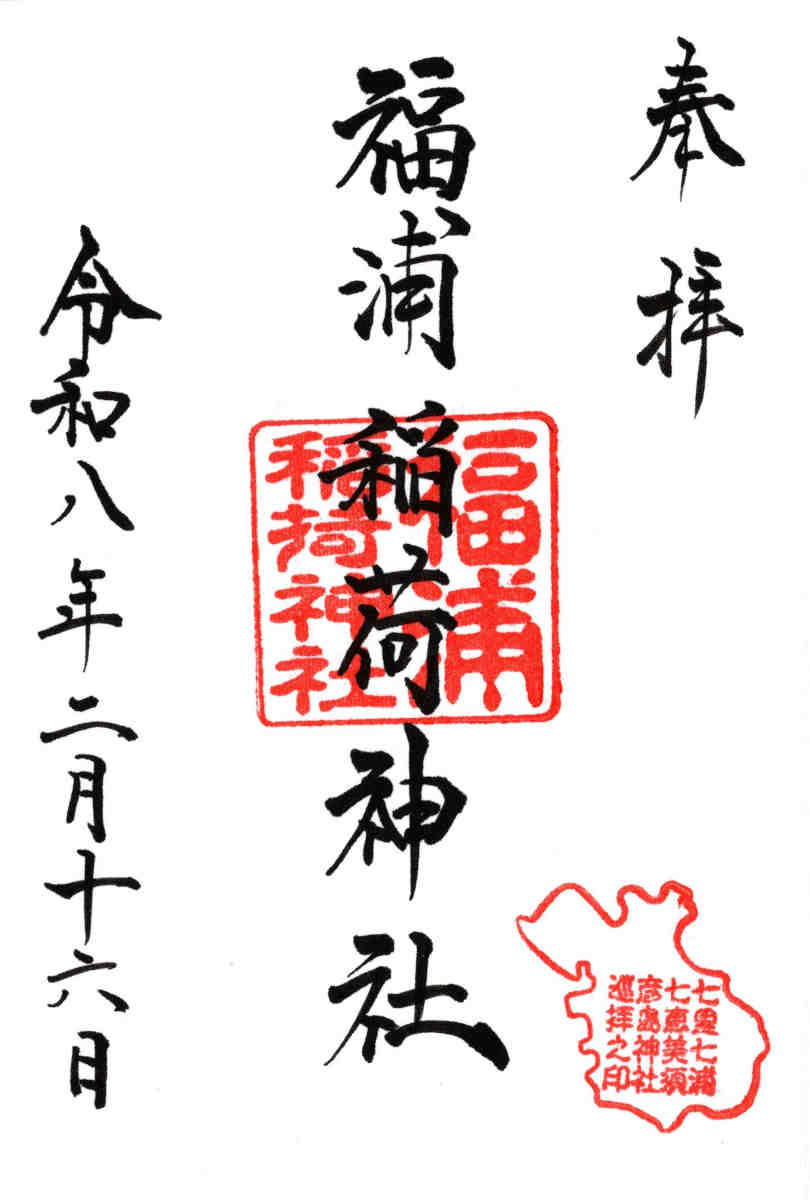 奉拝
福浦稲荷神社
福浦
稲荷神社
七里七浦
七恵美須
彦島神社
巡拝之印
令和八年二月十六日